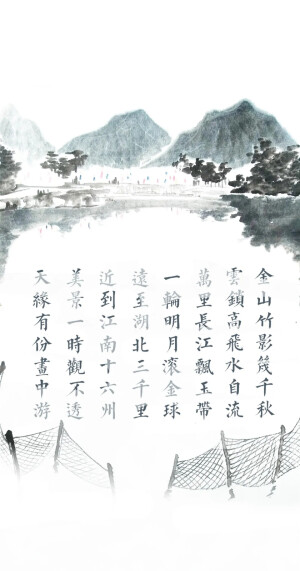 金山竹影幾千秋
雲鎖高飛水自流
萬里長江飄玉帶
一輪明月滾金球
遠至湖北三千里
近到江南十六州
美景一時觀不透
天緣有份畫中游